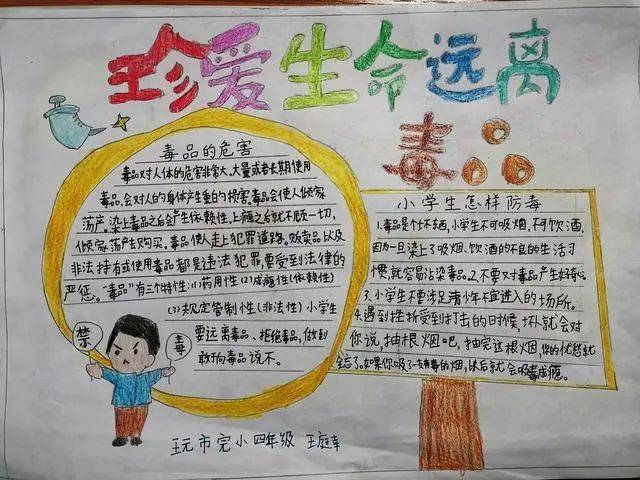 珍爱生命远离
毒品
毒品的危害
毒品对人体的危害非常大,大量或者长期使用
毒品,会对人的身体产生重的损害,毒品会使人倾家
荡产,染上毒品之后会产生依赖性,上瘾之后就不顾一切,
倾家荡产去购买,毒品使人走上犯罪道路,贩卖品以及
非法持有或使用毒品都是违法犯罪,要受到法律的
严惩。“毒品”有三个特性:(1)药用性(2)成瘾性(依赖性)
(3)规定管制性(非法性)小学生
要远离毒品、拒绝毒品,做到
敢于向毒品说不。
禁
毒
小学生怎样防毒
1.毒品是个坏东西,小学生不可吸烟,不可饮酒,
因为一旦染上了吸烟、饮酒的不良的生活习
惯,就容易沾染毒品。2.不要对毒品产生好奇心
3.小学生不要涉足青少年不宜进入的场所。
4.遇到挫折受到打击的时候,坏人就会对
你说,抽根烟吧,抽完这根烟,你的忧愁就
全忘了。如果你吸了一支有毒的烟,以后就会吸毒成瘾。
市完小四年级 王庭